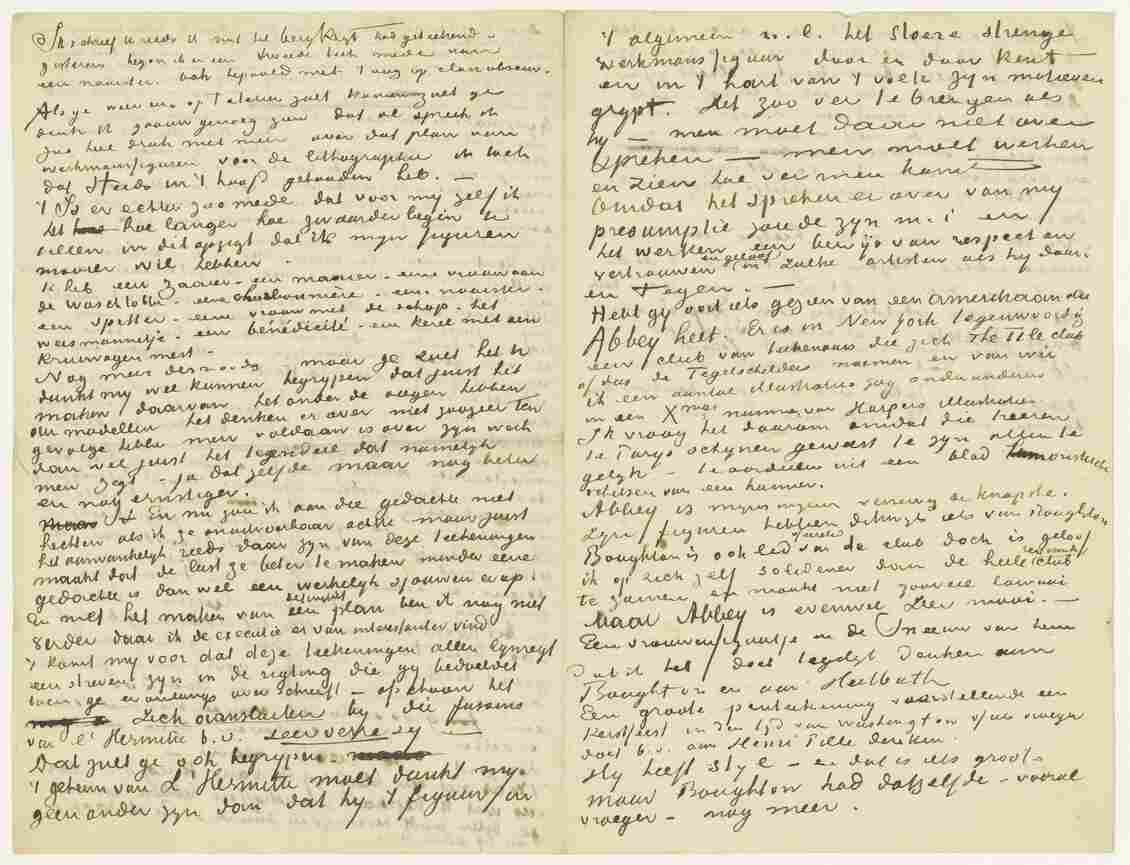 Ik schreef U reeds ik met het bergkrijt had geteekend –
Gisteren begon ik er een tweede teek. mede naar
een naaister. ook bepaald met 't oog op clair obscur.
Als ge weer eens op 't atelier zult komen zult ge
denk ik gaauw genoeg zien dat al spreek ik
zoo heel druk niet meer over dat plan van
werkmansfiguren voor de lithographie ik toch
dat steeds in 't hoofd gehouden heb. –
't Is er echter zoo mede dat voor mij zelf ik
het hoe langer hoe zwaarder begin te
tillen in dit opzigt dat ik mijn figuren
mooier wil hebben.
Ik heb een zaaier – een maaier – eene vrouw aan
de waschtobbe – eene charbonnière – een naaister –
een spitter – eene vrouw met de schop – het
weesmannetje – een bénédicité – een kerel met een
kruiwagen mest –
Nog meer desnoods maar ge zult het U
dunkt mij wel kunnen begrijpen dat juist het
maken daarvan het onder de oogen hebben
der modellen het denken er over niet zoozeer ten
gevolge hebbe men voldaan is over zijn werk
dan wel juist het tegendeel dat namelijk
men zegt – ja dat zelfde maar nog beter
en nog ernstiger.
En nu zou ik aan die gedachte niet
hechten als ik ze onuitvoerbaar achtte maar juist
het aanvankelijk reeds daar zijn van deze teekeningen
maakt dat de lust ze beter te maken minder eene
gedachte is dan wel een werkelijk sjouwen er op.
En met het maken van een plan ben ik nog niet
verder daar ik de executie er van interessanter vind
't komt mij voor dat deze teekeningen allen tgmzegt
een streven zijn in de rigting die gij bedoeldet
toen ge er onlangs over schreeft – ofschoon het
zich aansluiten bij die fusains
van l'Hermitte b.v. zeer verre zij –
Dat zult ge ook begrijpen –
't geheim van L'Hermitte moet dunkt mij
geen ander zijn dan dat hij 't figuur in
't algemeen n.l. het stoere strenge
werkmansfiguur door en door kent
en in 't hart van 't volk zijn motieven
grijpt. Het zoo ver te brengen als
hij – men moet daar niet over
spreken – men moet werken
en zien hoe ver men kan –
Omdat het spreken er over van mij
presumptie zoude zijn m.i. en
het werken een bewijs van respect en
vertrouwen en geloof in zulke artisten als hij daar-
en tegen. –
Hebt gij ooit iets gezien van een amerikaan die
Abbey heet. Er is in New York tegenwoordig
een club van teekenaars die zich The Tile club
of dus de Tegelschilders noemen en van wie
ik een aantal illustraties zag onder anderen
in een Xmas nummer van Harpers Illustration.
Ik vraag het daarom omdat die heeren
te Parys schynen geweest te zyn allen te
gelijk – te oordeelen uit een blad humoristische
schetsen van een hunner.
Abbey is mijns inziens verreweg de knapste.
Zijn figuren hebben dikwijls iets van Boughton
Boughton is ook lid van de club doch is geloof
ik op zich zelf solideder dan de heele club
te zamen en maakt niet zooveel lawaai
Maar Abbey is evenwel zeer mooi. –
Een vrouwenfiguurtje in de Sneeuw van hem
dat ik heb doet tegelijk denken aan
Boughton en aan Heilbuth
Een groote penteekening voorstellende een
kerstfeest in den tijd van Washington of iets vroeger
doet b.v. aan Henri Pille denken.
Hij heeft Styl – en dat is iets groots
maar Boughton had datzelfde – vooral
vroeger – nog meer.